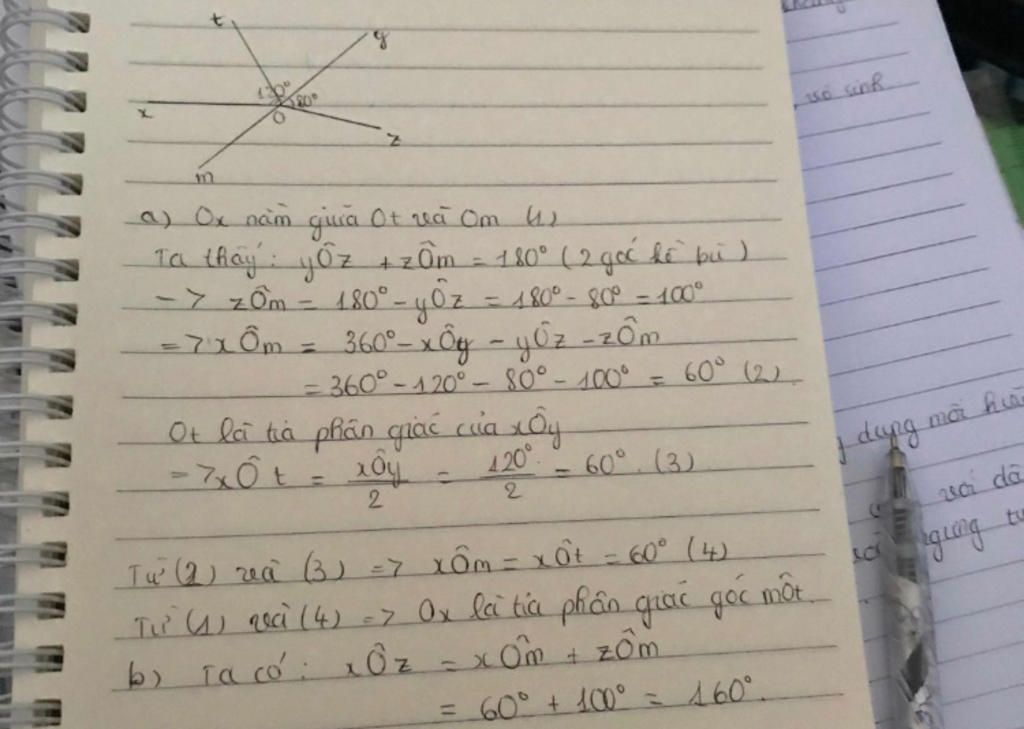 t
y
130°
80°
x
O
z
m
a) Ox nằm giữa Ot và Om (1)
Ta thấy: yÔz + zÔm = 180° (2 góc kề bù)
-> zÔm = 180° - yÔz = 180° - 80° = 100°
=> xÔm = 360° - xÔy - yÔz - zÔm
= 360° - 120° - 80° - 100° = 60° (2)
Ot là tia phân giác của xÔy
=> xÔt = xÔy/2 = 120°/2 = 60°. (3)
Từ (2) và (3) => xÔm = xÔt = 60° (4)
Từ (1) và (4) => Ox là tia phân giác góc mÔt.
b) Ta có: xÔz = xÔm + zÔm
= 60° + 100° = 160°.
vô sinh
dụng mỗi
với